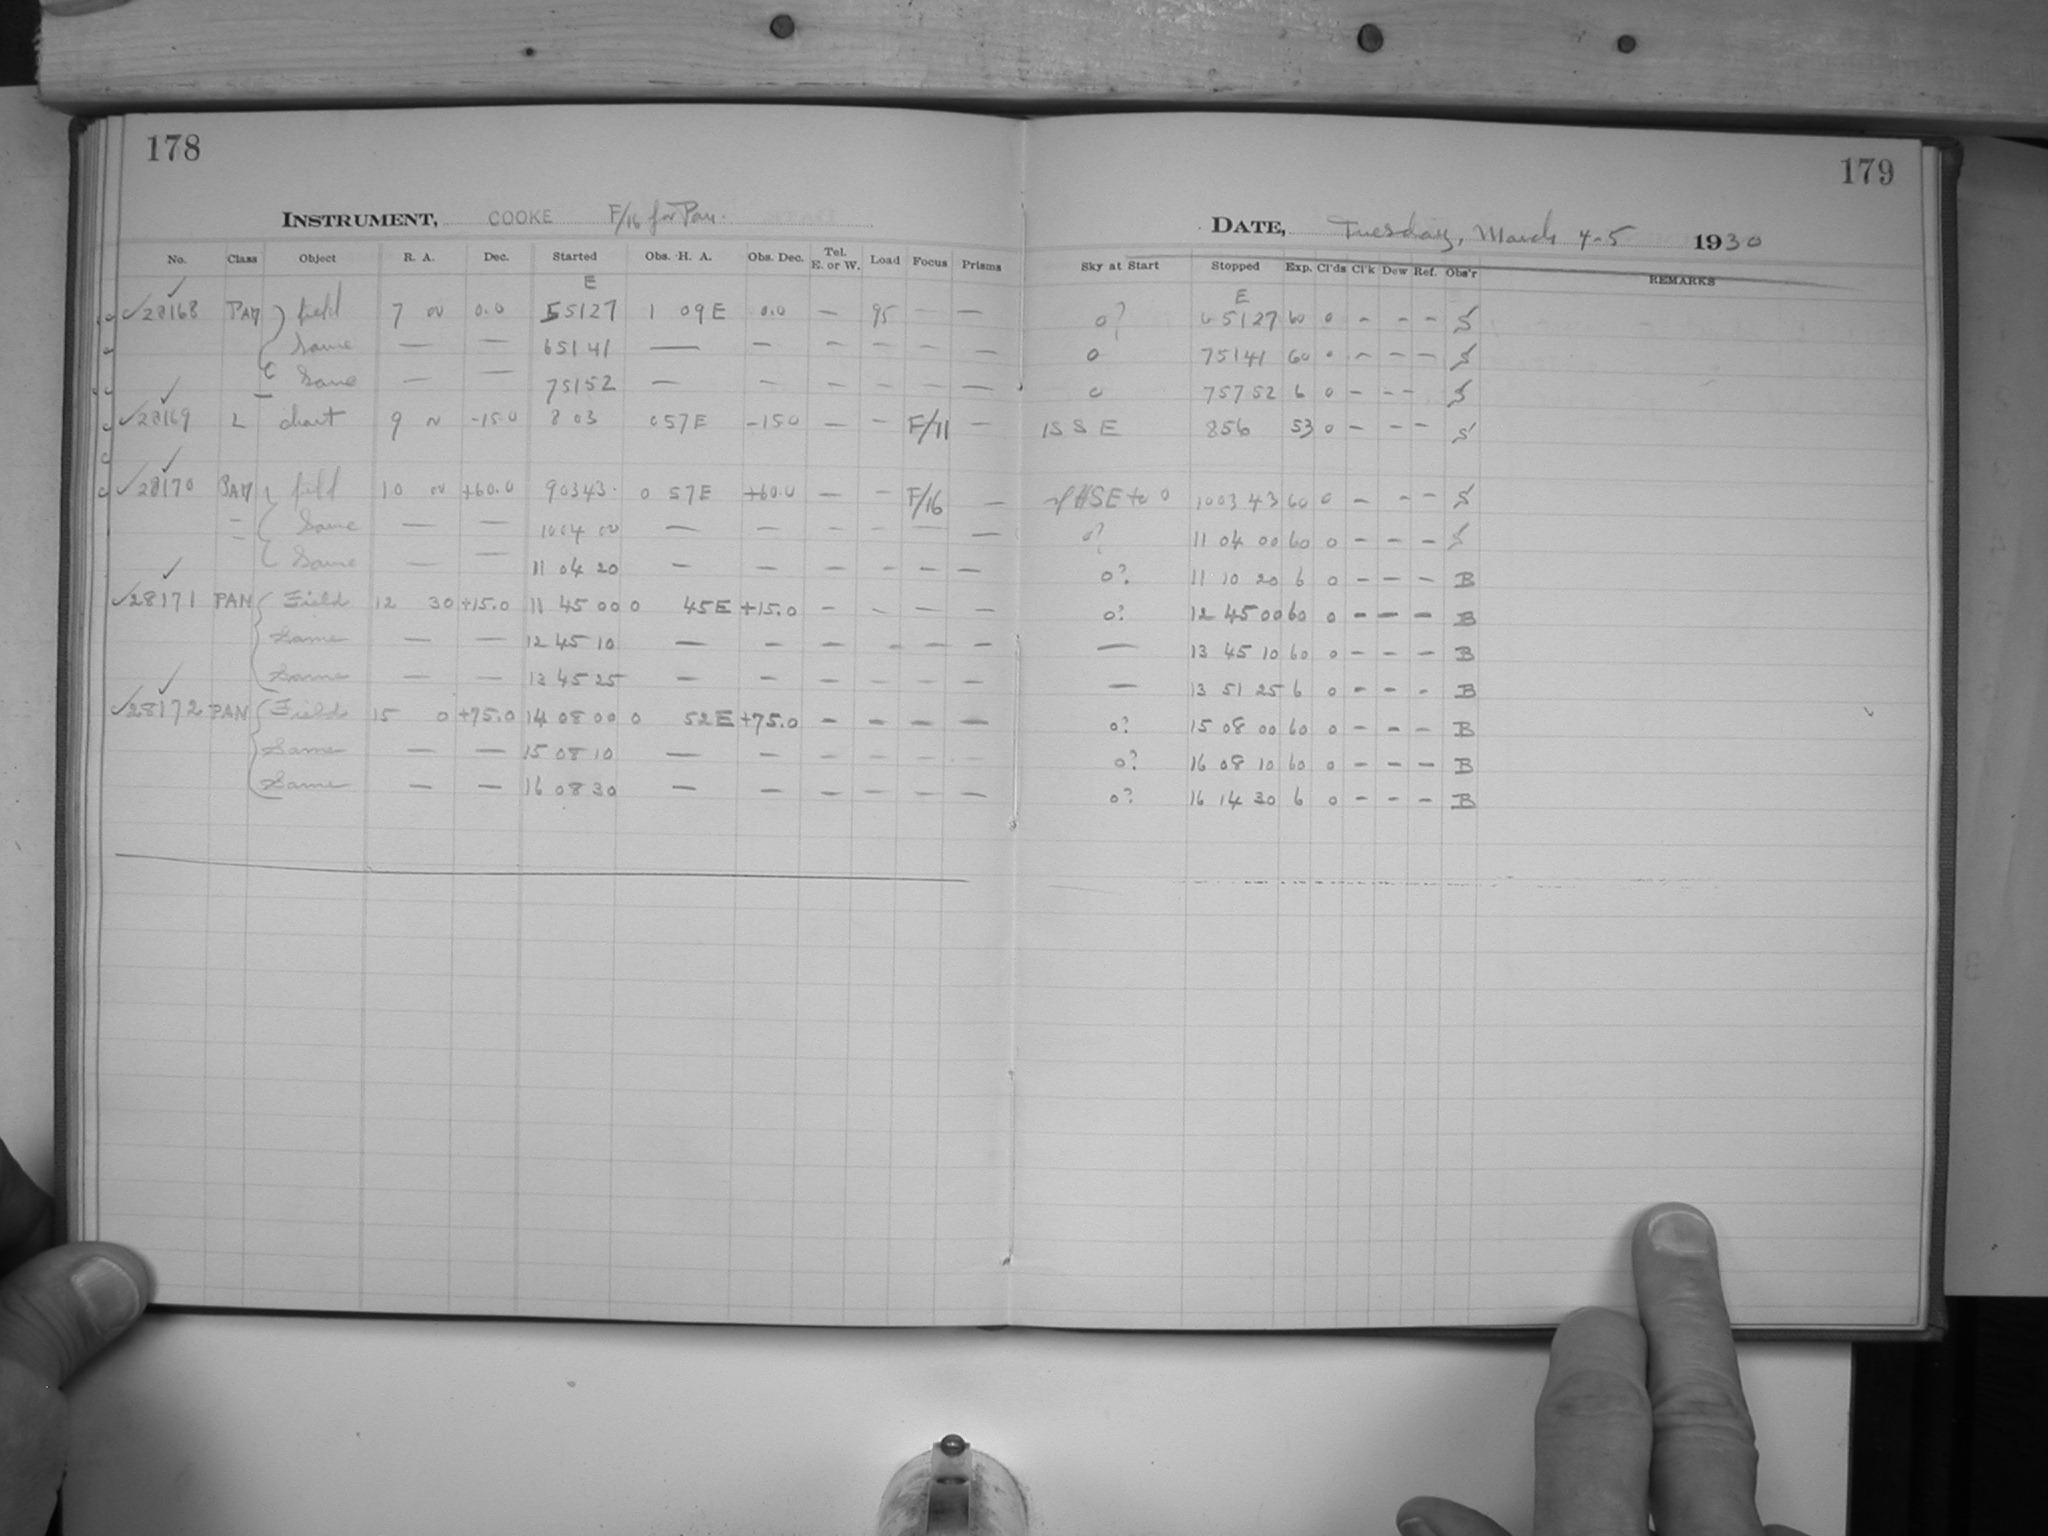 178
179
INSTRUMENT, COOKE F/16 for Pan.
DATE, Tuesday, March 4-5 1930
No. Class Object R. A. Dec. Started Obs. H. A. Obs. Dec. Tel. E. or W. Load Focus Prisms Sky at Start Stopped Exp. Cl'ds Cl'k Dew Ref. Obs'r REMARKS
E E
✓28168 PAN field 7 0.0 55127 1 09E 0.0 — 95 — — 0? 65127 60 0 - - - S
Same — — 65141 — — — — — — 0 75141 60 0 - - - S
Same — — 75152 — — — — — — 0 75752 6 0 - - - S
✓28169 L chart 9 -15.0 8 03 0 57E -15.0 — — F/11 — 1S S E 856 53 0 - - - S
✓28170 PAN field 10 +60.0 90343 0 57E +60.0 — — F/16 — HSE to 0 1003 43 60 0 - - - S
Same — — 1004 00 — — — — — — 0? 11 04 00 60 0 - - - S
Same — — 11 04 20 — — — — — — 0? 11 10 20 6 0 - - - B
✓28171 PAN Field 12 30 +15.0 11 45 00 0 45E +15.0 — — — — 0? 12 45 00 60 0 - - - B
Same — — 12 45 10 — — — — — — — 13 45 10 60 0 - - - B
Same — — 13 45 25 — — — — — — — 13 51 25 6 0 - - - B
✓28172 PAN Field 15 0 +75.0 14 08 00 0 52E +75.0 — — — — 0? 15 08 00 60 0 - - - B
Same — — 15 08 10 — — — — — — 0? 16 08 10 60 0 - - - B
Same — — 16 08 30 — — — — — — 0? 16 14 30 6 0 - - - B